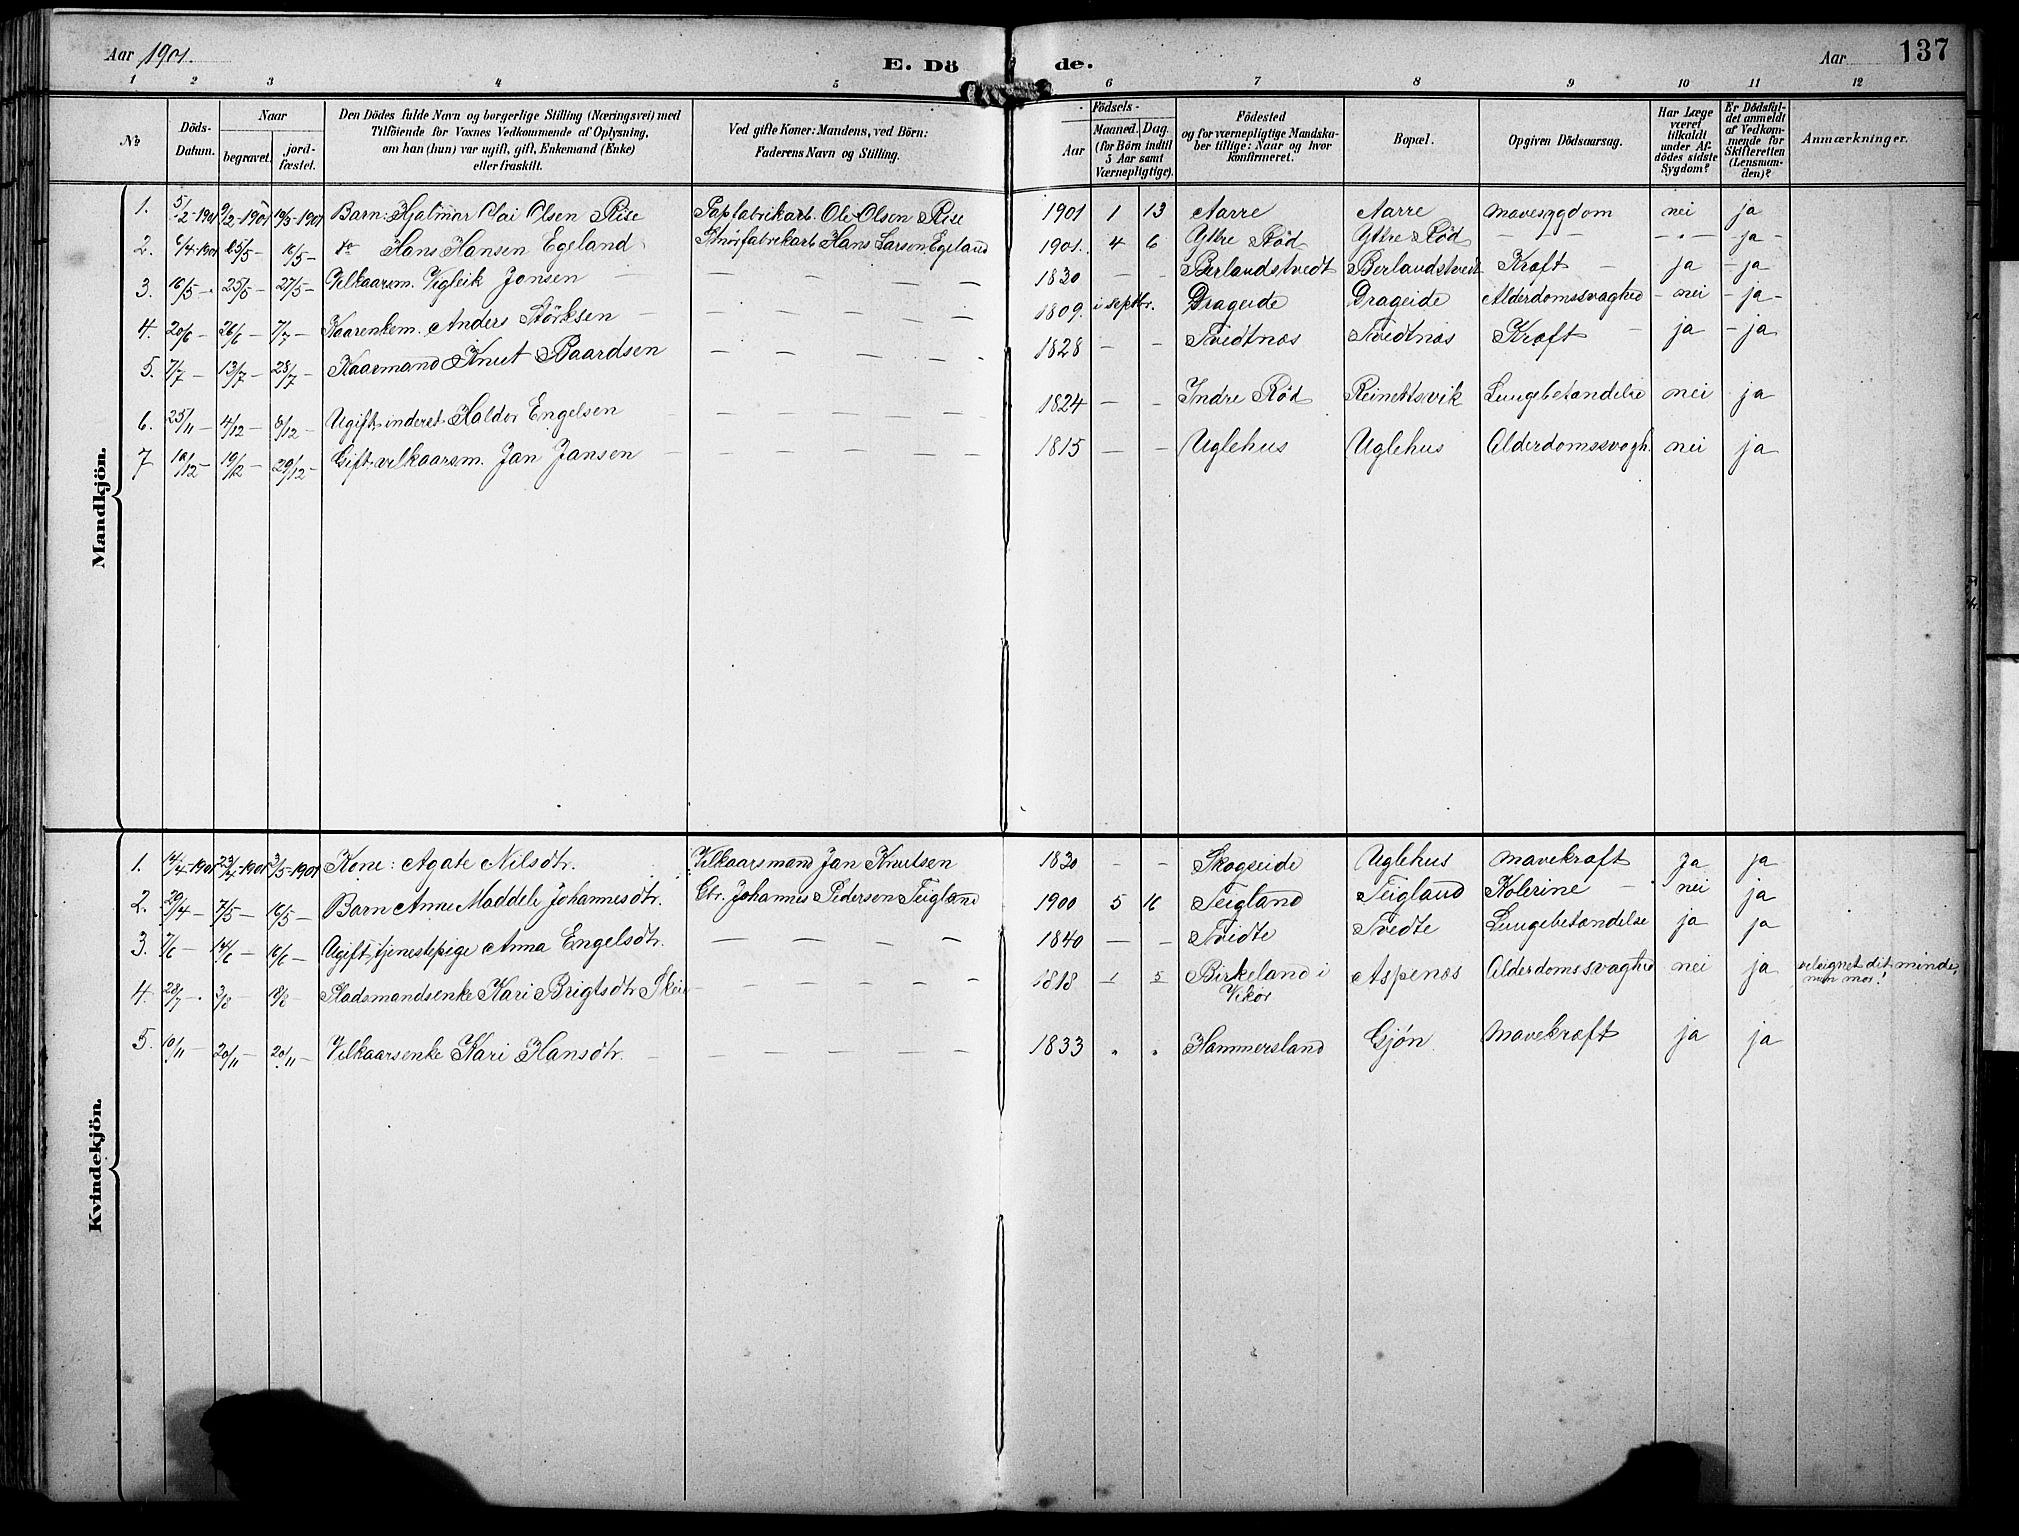 Aar 1901.
E. Dö de.
Aar 137
1 2 3 4 5 6 7 8 9 10 11 12
No
Döds-Datum.
Naar
begravet. jordfæstet.
Den Dödes fulde Navn og borgerlige Stilling (Næringsvei) med
Tilföiende for Voxnes Vedkommende af Oplysning,
om han (hun) var ugift, gift, Enkemand (Enke)
eller fraskilt.
Ved gifte Koner: Mandens, ved Börn:
Faderens Navn og Stilling.
Födsels-
Aar
Maaned. Dag.
(for Börn indtil
5 Aar samt
Værnepligtige).
Födested
og for værnepligtige Mandska-
ber tillige: Naar og hvor
konfirmeret.
Bopæl.
Opgiven Dödsaarsag.
Har Læge
været
tilkaldt
under Af-
dödes sidste
Sygdom?
Er Dödsfal-
det anmeldt
af Vedkom-
mende for
Skifteretten
(Lensman-
den)?
Anmærkninger.
Mandkjön.
1. 5/2-1901 9/2-1901 19/5-1901 Barn: Hjalmar Olsen Rise Papfabrikarb. Ole Olsen Rise 1901 1 13 Aarre Aarre Mavesygdom nei ja
2. 6/4-1901 25/5- 16/5- do Hans Hansen Egeland Snörfabrikarb Hans Larsen Egeland 1901. 4 6 Ytre Röd Ytre Röd - - - - " - ja -
3. 16/5- 25/5- 27/5- Vilkaarsm. Vigleik Jonsen - - - - - 1830 - - Berlandstvedt Berlandstvedt Kræft - ja - ja
4. 20/6- 26/6- 7/7- Kaarenkem. Anders Störksen - - - - - 1809. i septbr. Drageide Drageide Alderdomssvaghed - nei - ja -
5. 7/7- 13/7- 28/7- Kaarmand Knut Baardsen - - - - - 1828 - - Tvedtnæs Tvedtnæs Kræft - ja - ja
6. 25/11- 4/12- 8/12- Ugift inderst Haldor Engelsen - - - - - 1824 - - Indre Röd Reinertsvik Lungebetændelse nei ja
7 10/12- 19/12- 29/12- Gift vilkaarsm. Jan Jansen - - - - - - 1815 - - Uglehus Uglehus Alderdomssvagh. nei ja
Kvindekjön.
1. 14/4-1901 23/4-1901 3/5-1901 Kone: Agate Nilsdtr. Vilkaarsmand Jan Knutsen 1830 - - Skogseide Uglehus Mavekræft Ja ja
2. 29/4- 7/5- 16/5- Barn Anne Maddeli Johannesdtr. Gbr. Johannes Pederson Teigland 1900 5 16 Teigland Teigland Kolerine - nei ja
3. 7/6- 14/6- 16/6- Ugift tjenestepige Anna Engelsdtr. - - - - 1840 - - Tvedte Tvedte Lungebetændelse ja ja
4. 28/7- 3/8- 18/8- Pladsmandsenke Kari Brigtsdtr. - - - - - 1818 1 5 Birkeland i Vikör Aspenæs Alderdomssvaghed nei ja velsignet dit minde, min mor!
5. 10/11- 20/11- 20/11- Vilkaarsenke Kari Hansdtr. - - - - - - 1833 " " Hammersland Gjön Mavekræft ja ja